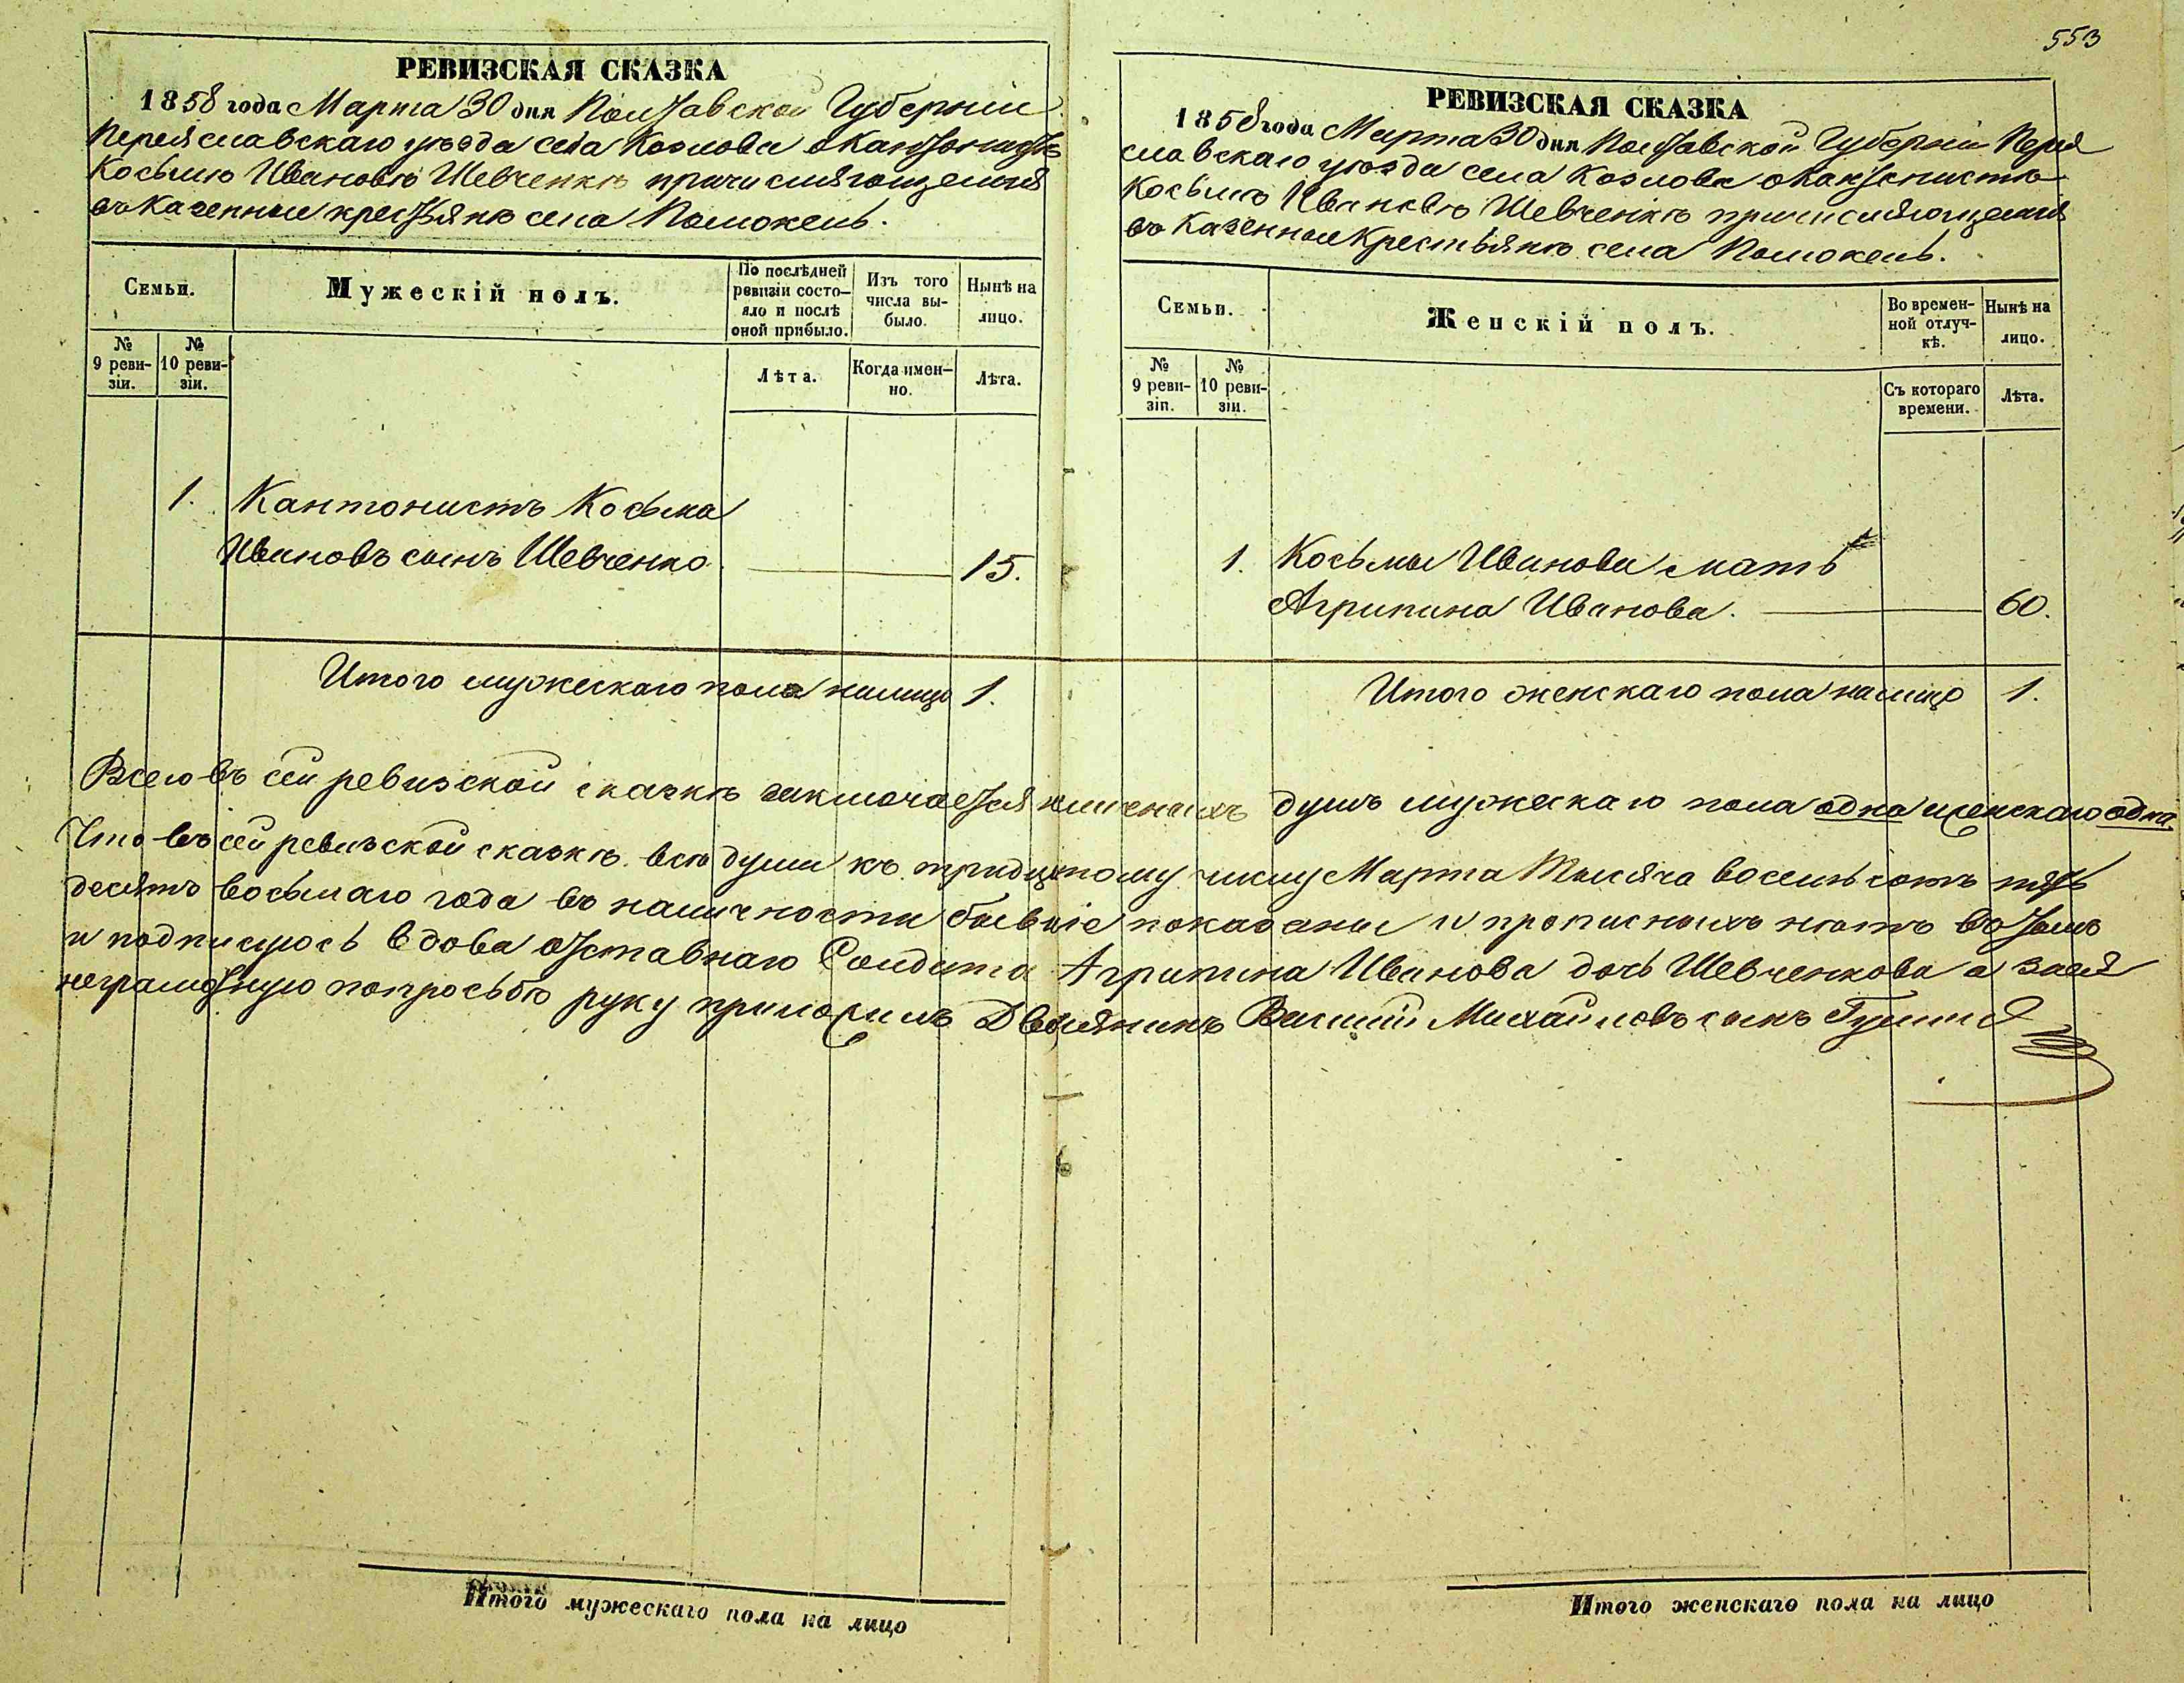 553
РЕВИЗСКАЯ СКАЗКА
1858 года Марта 30 дня Полтавской Губерніи
Переяславскаго уѣзда села Козлова о Кантонистѣ
Косьмѣ Ивановѣ Шевченкѣ причисляющемся
въ казенные крестьянѣ села Помокель.
Семьи.
Мужескій полъ.
По послѣдней ревизіи состо-
яло и послѣ
оной прибыло.
Изъ того
числа вы-
было.
Нынѣ на
лицо.
№
9 реви-
зіи.
№
10 реви-
зіи.
Лѣта.
Когда имен-
но.
Лѣта.
1. Кантонистъ Косьма
Ивановъ сынъ Шевченко 15.
Итого мужескаго пола налицо 1.
РЕВИЗСКАЯ СКАЗКА
1858 года Марта 30 дня Полтавской Губерніи Перея
славскаго уѣзда села Козлова о Кантонистѣ
Косьмѣ Ивановѣ Шевченкѣ причисляющемся
въ Казенные Крестьянѣ села Помокель.
Семьи.
Женскій полъ.
Во времен-
ной отлуч-
кѣ.
Нынѣ на
лицо.
№
9 реви-
зіи.
№
10 реви-
зіи.
Съ котораго
времени.
Лѣта.
1. Косьмы Иванова мать
Агрипина Иванова. 60.
Итого женскаго пола налицо 1.
Всего въ сей ревизской сказкѣ заключается наличныхъ душъ мужескаго пола одна и женскаго одна.
Что въ сей ревизской сказкѣ всѣ души къ тридцатому числу Марта Тысяча восемь сотъ пять
десятъ восьмаго года въ наличности бывшіе показаны и прописныхъ нѣтъ въ томъ
и подписуюсь вдова отставнаго Солдата Агрипина Иванова дочь Шевченкова а за ея
неграмотную попросьбѣ руку приложилъ Дворянинъ Василій Михайловъ сынъ
Итого мужескаго пола на лицо
Итого женскаго пола на лицо